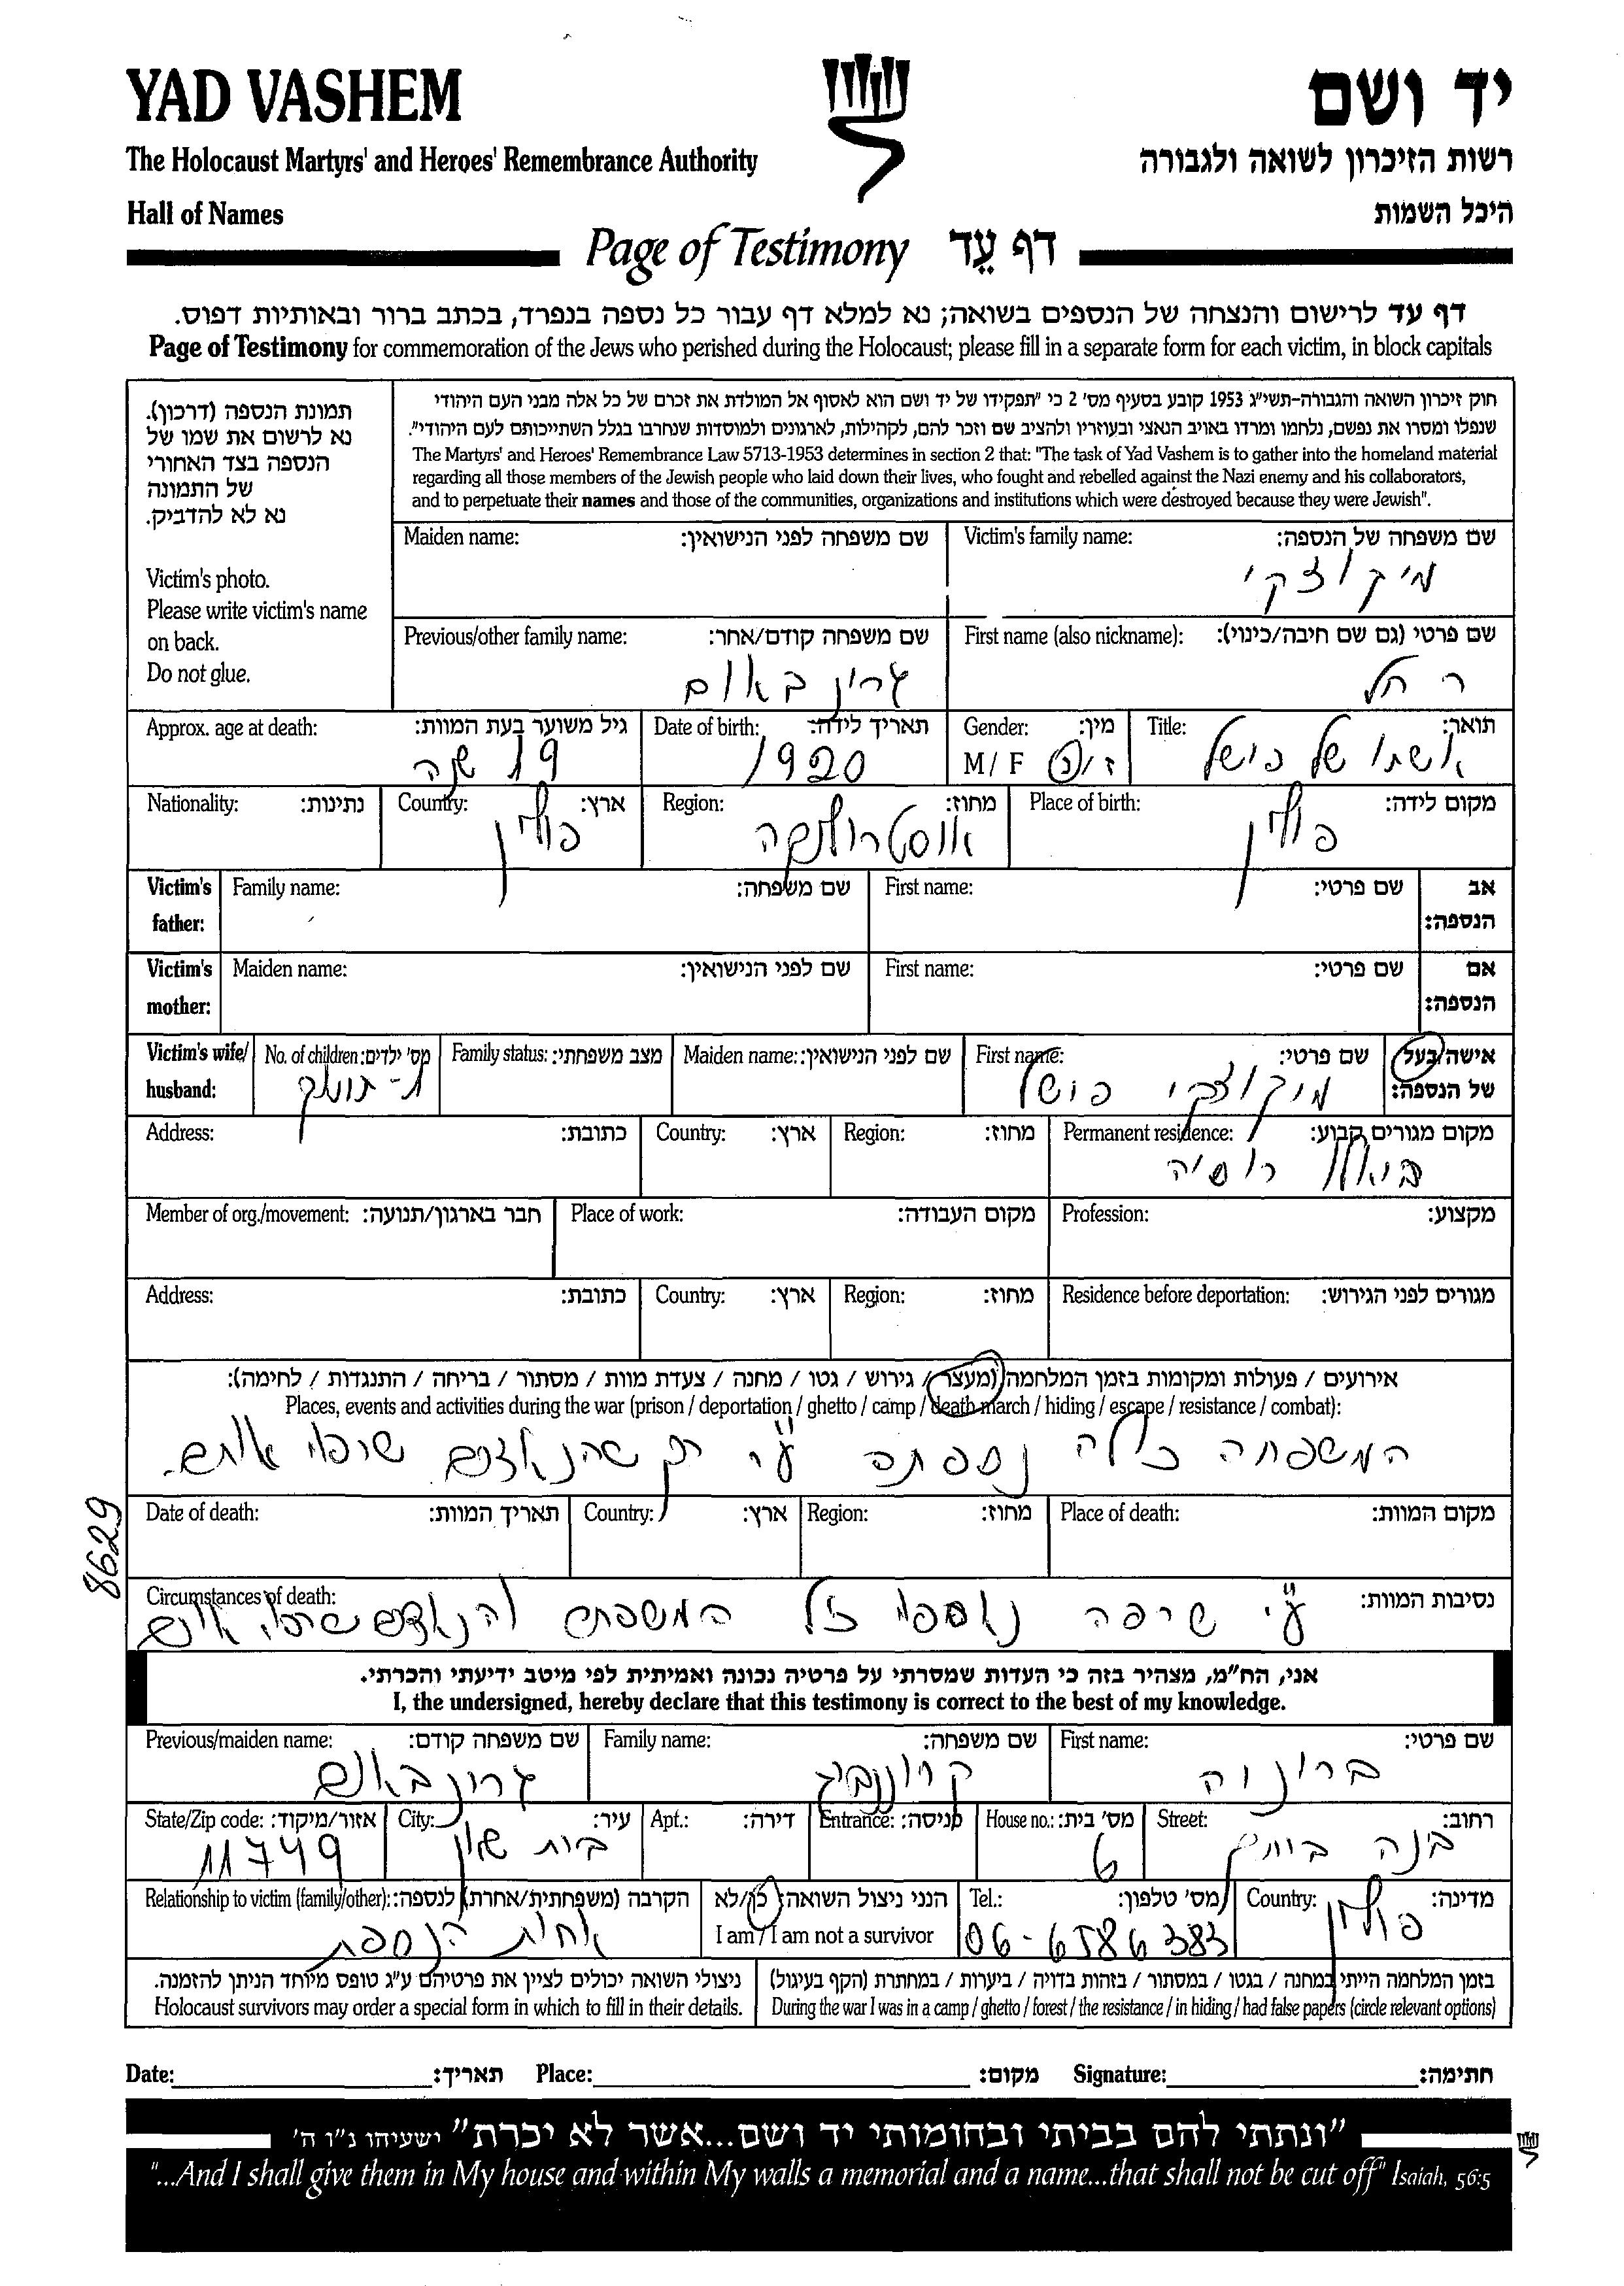 YAD VASHEM
יד ושם
The Holocaust Martyrs' and Heroes' Remembrance Authority
רשות הזיכרון לשואה ולגבורה
Hall of Names
היכל השמות
Page of Testimony דף עֵד
דף עד לרישום והנצחה של הנספים בשואה; נא למלא דף עבור כל נספה בנפרד, בכתב ברור ובאותיות דפוס.
Page of Testimony for commemoration of the Jews who perished during the Holocaust; please fill in a separate form for each victim, in block capitals
תמונת הנספה (דרכון).
נא לרשום את שמו של
הנספה בצד האחורי
של התמונה
נא לא להדביק.
Victim's photo.
Please write victim's name
on back.
Do not glue.
חוק זיכרון השואה והגבורה-תשי"ג 1953 קובע בסעיף מס' 2 כי "תפקידו של יד ושם הוא לאסוף אל המולדת את זכרם של כל אלה מבני העם היהודי
שנפלו ומסרו את נפשם, נלחמו ומרדו באויב הנאצי ובעוזריו ולהציב שם וזכר להם, לקהילות, לארגונים ולמוסדות שנחרבו בגלל השתייכותם לעם היהודי".
The Martyrs' and Heroes' Remembrance Law 5713-1953 determines in section 2 that: "The task of Yad Vashem is to gather into the homeland material
regarding all those members of the Jewish people who laid down their lives, who fought and rebelled against the Nazi enemy and his collaborators,
and to perpetuate their names and those of the communities, organizations and institutions which were destroyed because they were Jewish".
Maiden name: שם משפחה לפני הנישואין: Victim's family name: שם משפחה של הנספה:
מיקוצקי
Previous/other family name: שם משפחה קודם/אחר: First name (also nickname): שם פרטי (גם שם חיבה/כינוי):
גרינבאום רחל
Approx. age at death: גיל משוער בעת המוות: Date of birth: תאריך לידה: Gender: מין: Title: תואר:
19 שנה 1920 M / F ז/נ אשתו של פישל
Nationality: נתינות: Country: ארץ: Region: מחוז: Place of birth: מקום לידה:
פולין אוסטרולנקה פולין
Victim's father: Family name: שם משפחה: First name: שם פרטי: אב הנספה:
Victim's mother: Maiden name: שם לפני הנישואין: First name: שם פרטי: אם הנספה:
Victim's wife/ husband: No. of children: מס' ילדים: Family status: מצב משפחתי: Maiden name: שם לפני הנישואין: First name: שם פרטי: אישה/בעל של הנספה:
1- תינוק מיקוצקי פישל
Address: כתובת: Country: ארץ: Region: מחוז: Permanent residence: מקום מגורים קבוע:
רוסיה
Member of org./movement: חבר בארגון/תנועה: Place of work: מקום העבודה: Profession: מקצוע:
Address: כתובת: Country: ארץ: Region: מחוז: Residence before deportation: מגורים לפני הגירוש:
אירועים / פעולות ומקומות בזמן המלחמה (מעצר / גירוש / גטו / מחנה / צעדת מוות / מסתור / בריחה / התנגדות / לחימה):
Places, events and activities during the war (prison / deportation / ghetto / camp / death march / hiding / escape / resistance / combat):
המשפחה כולה נספתה ע"י כך שהנאצים שרפו אותם.
8629
Date of death: תאריך המוות: Country: ארץ: Region: מחוז: Place of death: מקום המוות:
Circumstances of death: נסיבות המוות:
ע"י שריפה נאספו כל המשפחות והנאצים שרפו אותם
אני, הח"מ, מצהיר בזה כי העדות שמסרתי על פרטיה נכונה ואמיתית לפי מיטב ידיעתי והכרתי.
I, the undersigned, hereby declare that this testimony is correct to the best of my knowledge.
Previous/maiden name: שם משפחה קודם: Family name: שם משפחה: First name: שם פרטי:
גרינבאום ברוניה
State/Zip code: אזור/מיקוד: City: עיר: Apt.: דירה: Entrance: כניסה: House no.: מס' בית: Street: רחוב:
11749 בית שאן 6
Relationship to victim (family/other): הקרבה (משפחתית/אחרת) לנספה: הנני ניצול השואה: כן/לא Tel.: מס' טלפון: Country: מדינה:
אחות הנספת I am / I am not a survivor 06-6586383 פולין
ניצולי השואה יכולים לציין את פרטיהם ע"ג טופס מיוחד הניתן להזמנה. בזמן המלחמה הייתי במחנה / בגטו / במסתור / בזהות בדויה / ביערות / במחתרת (הקף בעיגול)
Holocaust survivors may order a special form in which to fill in their details. During the war I was in a camp / ghetto / forest / the resistance / in hiding / had false papers (circle relevant options)
Date: תאריך: Place: מקום: Signature: חתימה:
"ונתתי להם בביתי ובחומותי יד ושם...אשר לא יכרת" ישעיהו נ"ו ה'
"...And I shall give them in My house and within My walls a memorial and a name...that shall not be cut off" Isaiah, 56:5